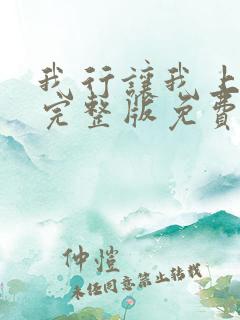 我行讓我上
完整版免費
仲愷
未经同意禁止转载